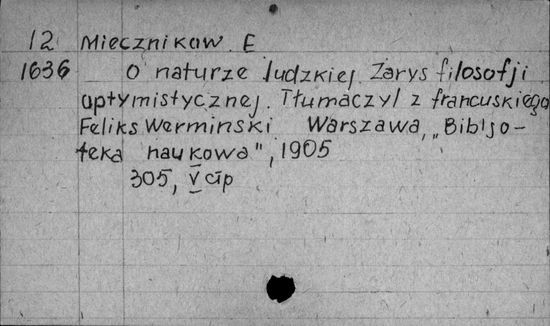 12 Miecznikow E
1636 O naturze ludzkiej. Zarys filosofji
optymistycznej. Tłumaczył z francuskiego
Feliks Werminski Warszawa, „Bibljo-
teka naukowa", 1905
305, V